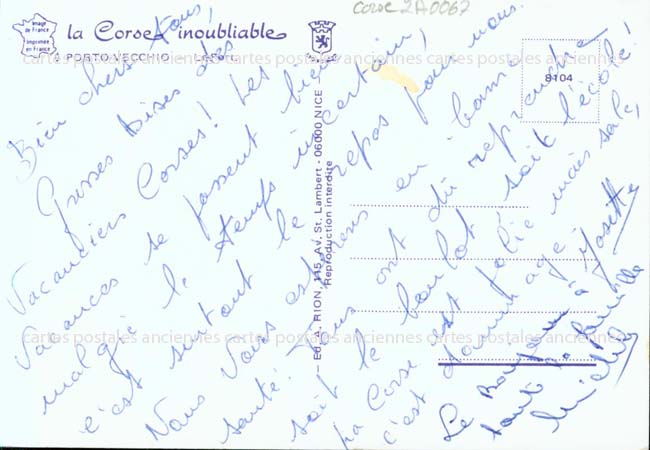 Corse 2A0062
Image de France
Imprimée en France
la Corse inoubliable
PORTO-VECCHIO
8104
cartes postales anciennes cartes postales anciennes cartes postales anciennes
Ed. A. RION, 115, Av. St. Lambert - 06000 NICE
Reproduction interdite
Bien chers tous,
Grosses bises des
Vacanciers Corses ! Les
Vacances se passent bien
malgré le temps incertain,
c'est surtout le repos pour nous.
Nous Vous espérons en bonne
santé. Tous ont dû reprendre
soit le boulot soit l'école !
La Corse est jolie mais sale,
c'est dommage.
Le bonjour à Josette
toute la famille
cartes postales anciennes cartes postales anciennes cartes postales anciennes